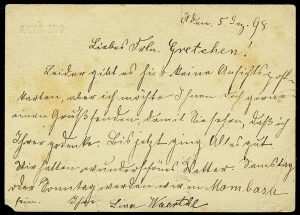 Aden. 5. Dez. 98
Liebes Frln. Gretchen!
Leider gibt es hier keine Ansichtspost-
karten, aber ich möchte Ihnen doch gerne
einen Gruß senden, damit Sie sehen, daß ich
Ihrer gedenke. Bis jetzt ging Alles gut
Wir hatten wunderschönes Wetter. Samstag
oder Sonntag werden wir in Mombasa
sein. Ihre Lina